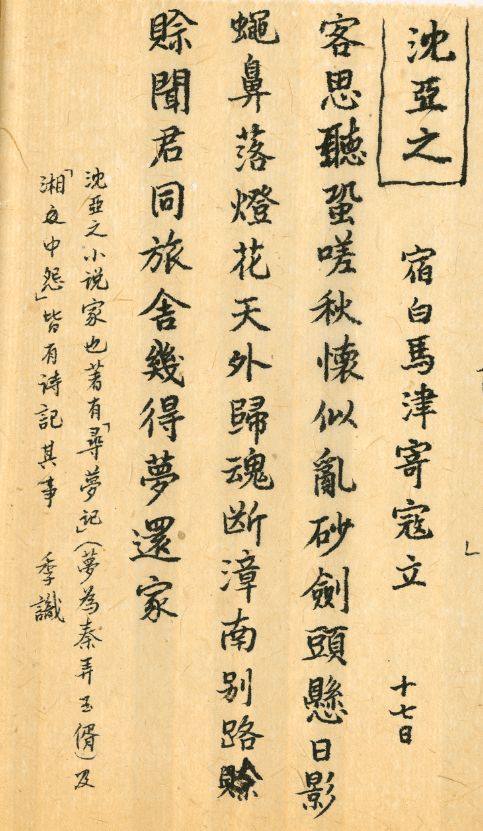 沈亞之
宿白馬津寄寇立
十七日
客思聽蛩嗟秋懷似亂砂劍頭懸日影
蠅鼻落燈花天外歸魂斷漳南別路賒
賒聞君同旅舍幾得夢還家
沈亞之小说家也著有「尋夢記」(夢為秦弄玉偦)及
「湘中怨」皆有诗記其事 季識